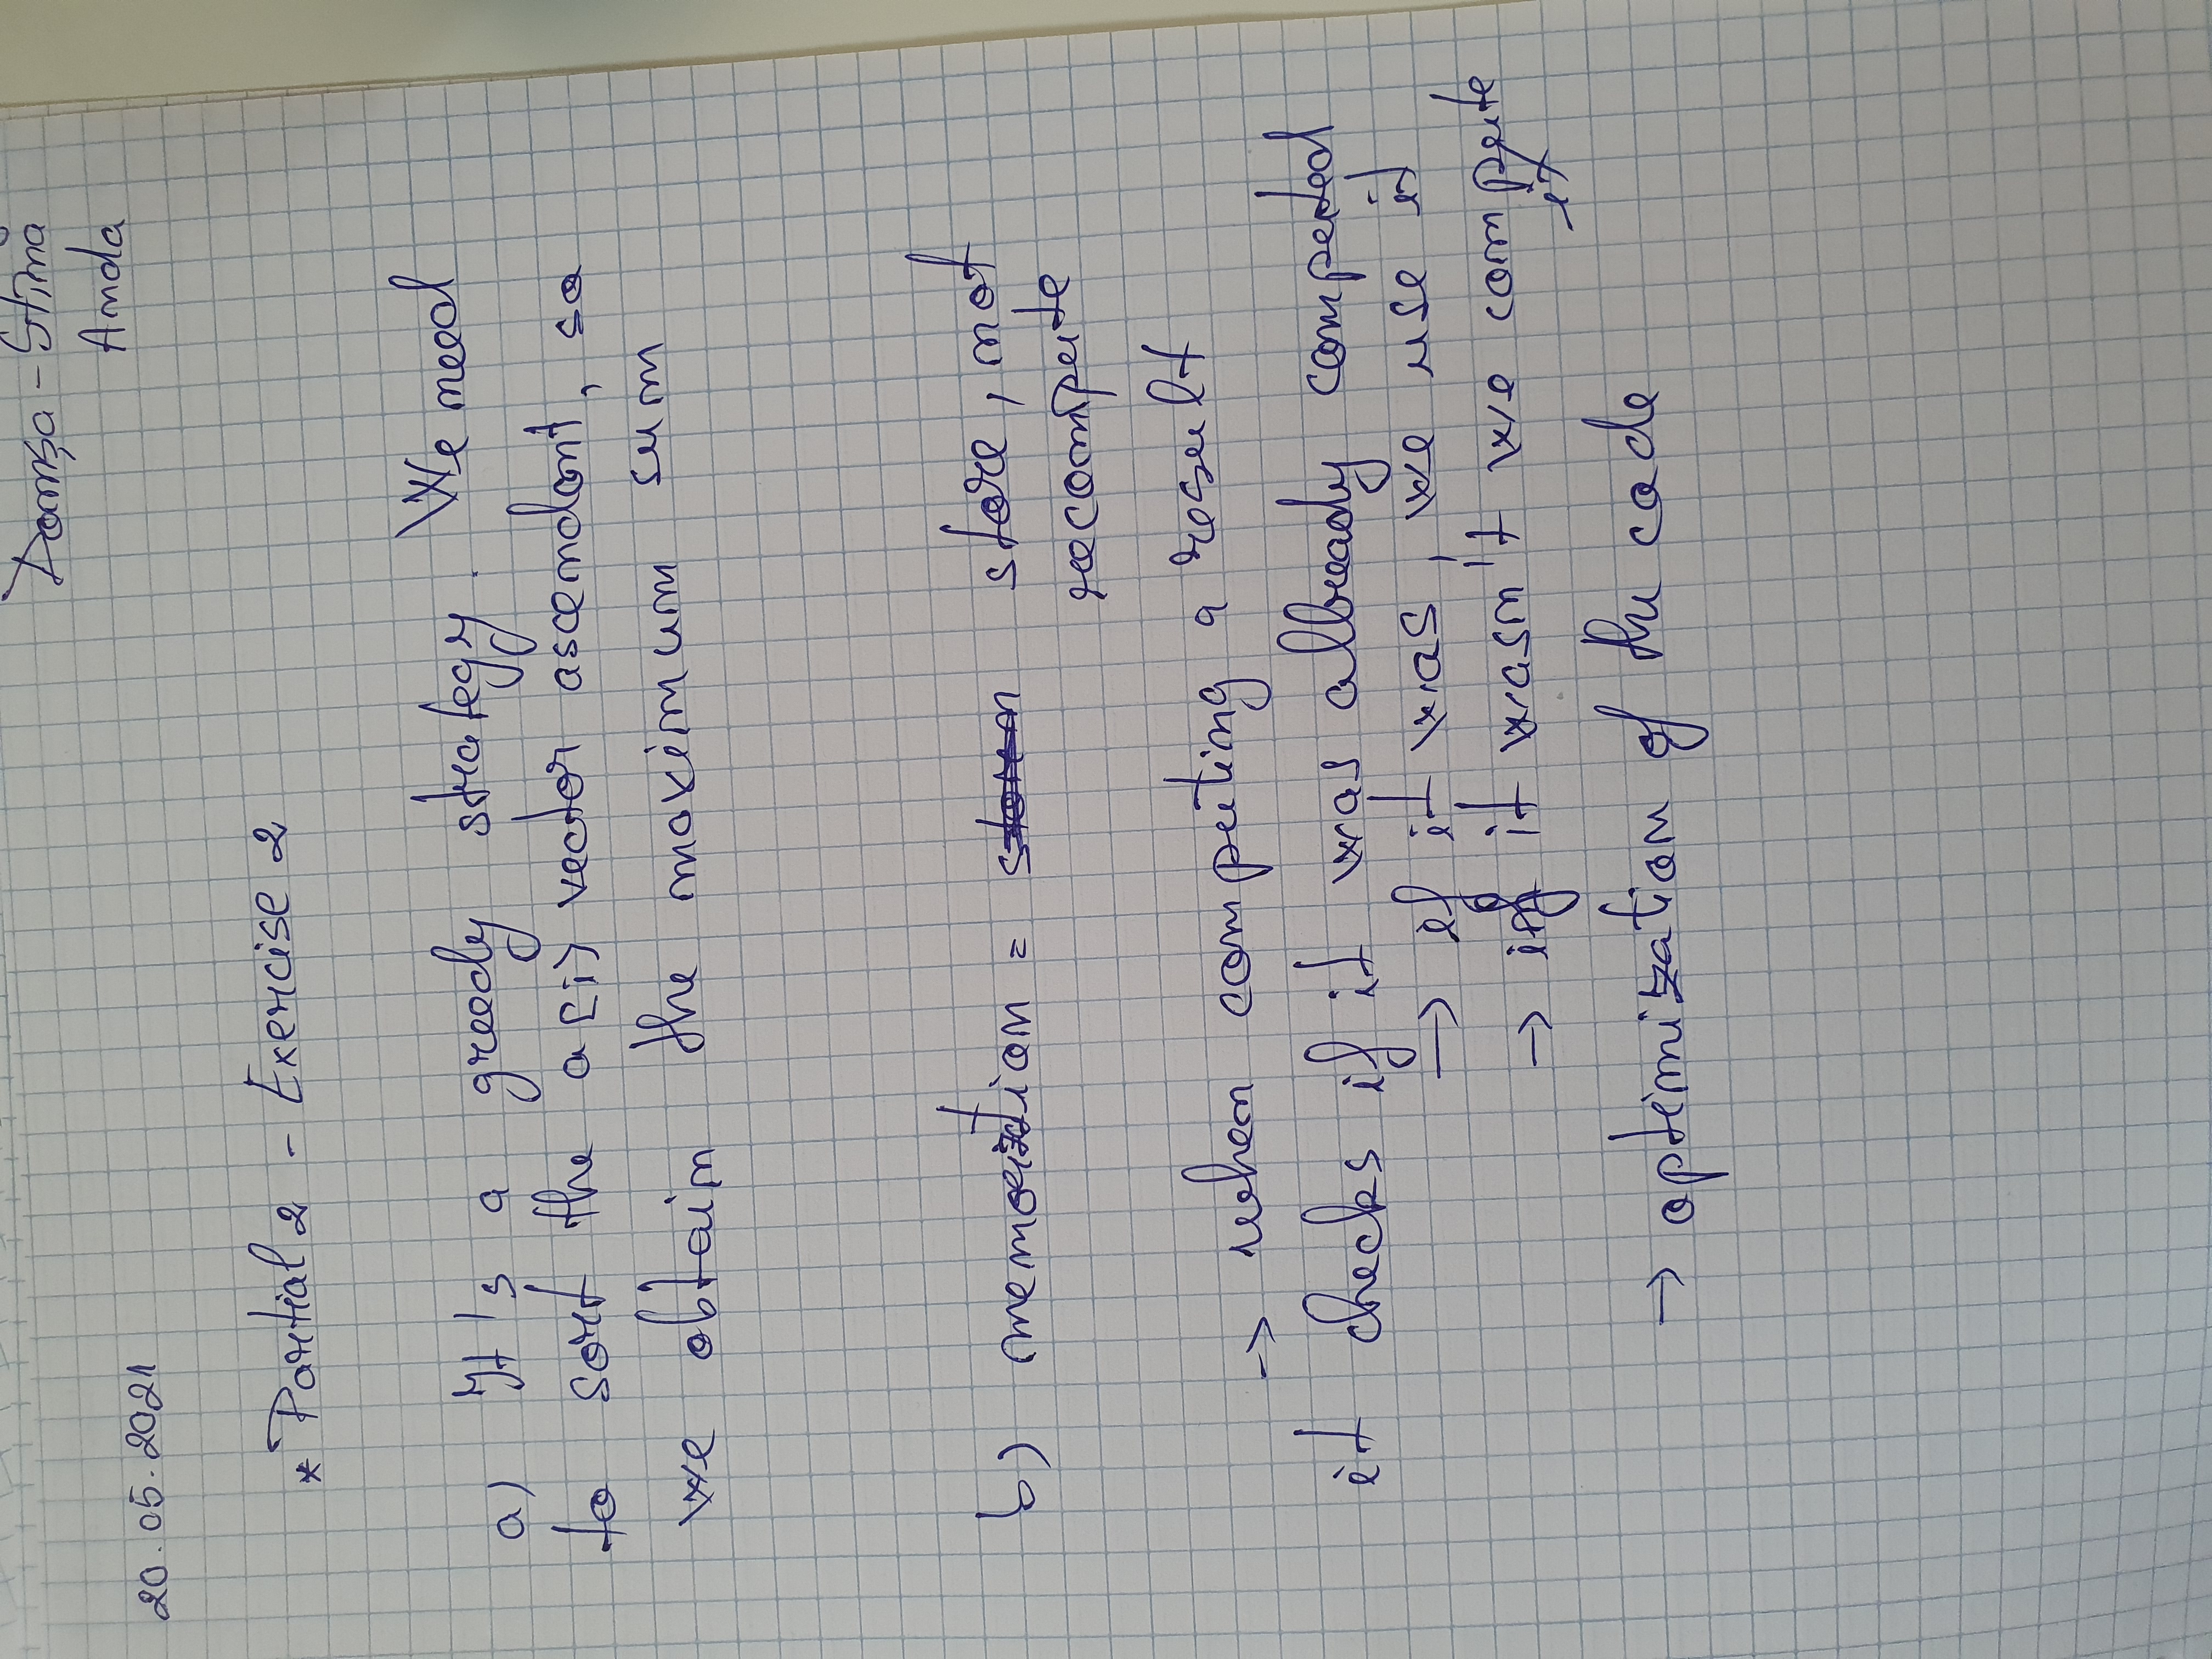 Domșa - Stînă
Anda
20.05.2021
* Partial 2 - Exercise 2
a) It's a greedy strategy. We need
to sort the a[i] vector ascendant, so
we obtain the maximum sum
b) = store, not
recompute
→ when computing a result
it checks if it was allready computed
→ if it was, we use it
→ if it wasn't we compute
it
→ optimization of the code